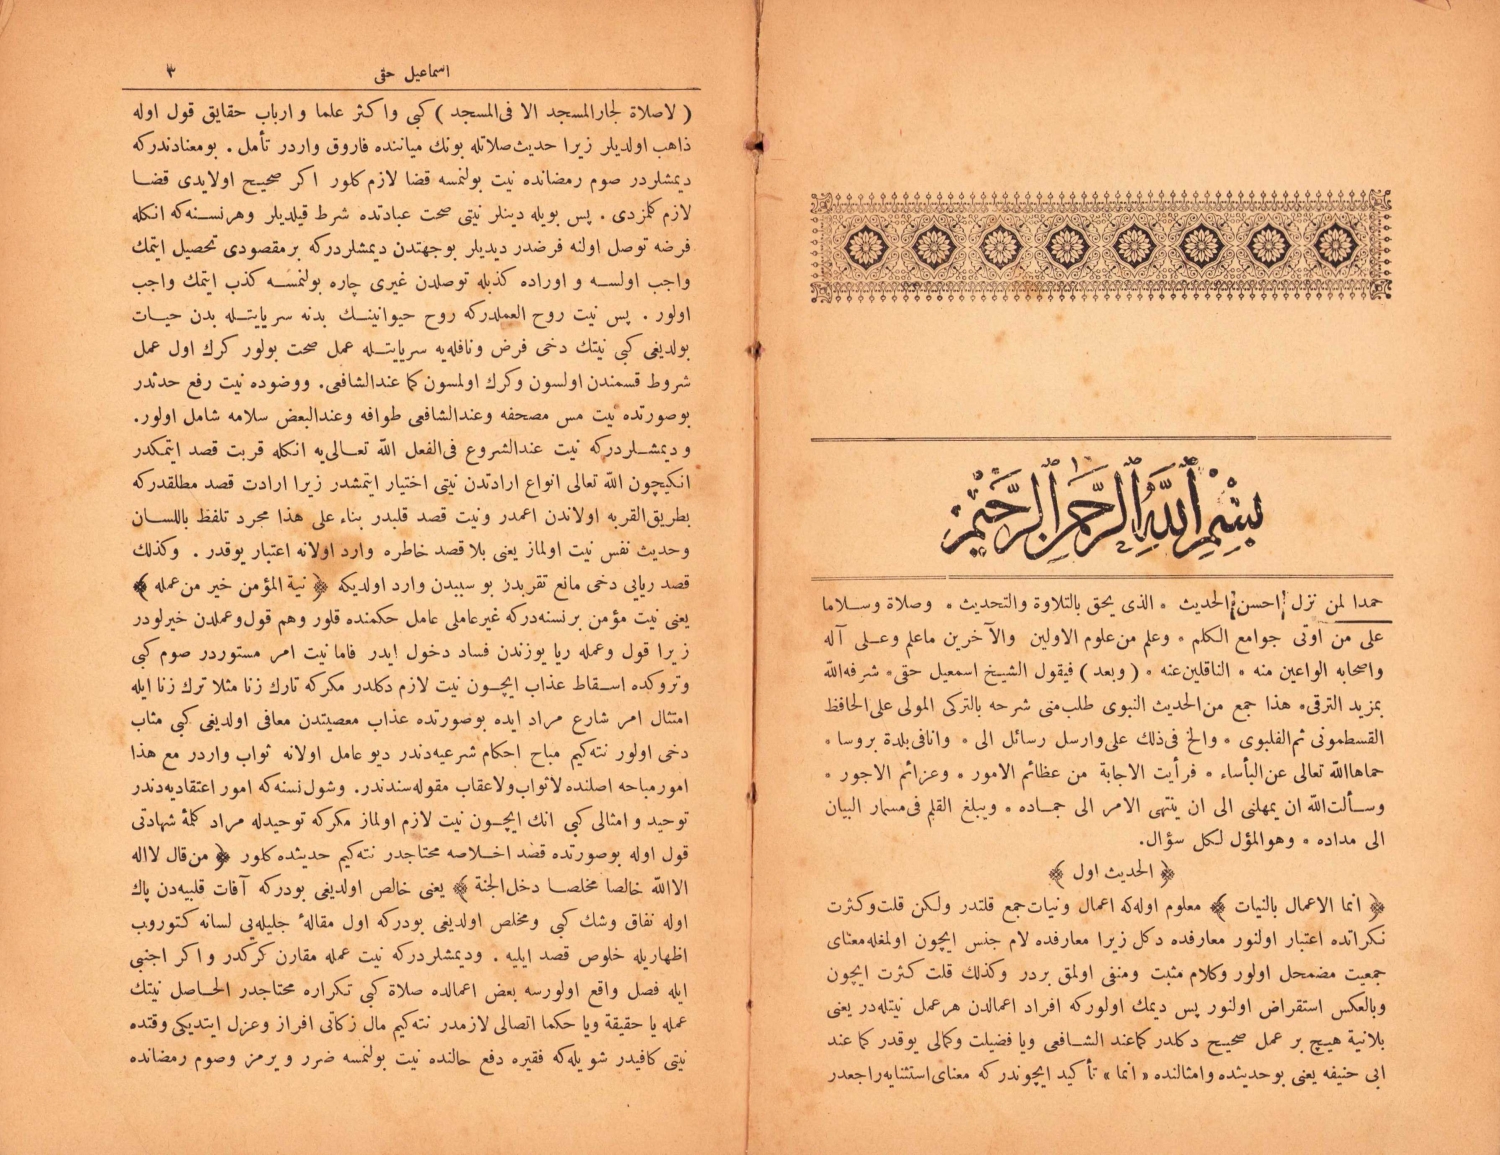 بسم الله الرحمن الرحيم
حمدا لمن نزل احسن الحديث ٭ الذى يحق بالتلاوة والتحديث ٭ وصلاة وسلاما
على من اوتى جوامع الكلم ٭ وعلم من علوم الاولين والآخرين ماعلم وعلى آله
واصحابه الواعين منه ٭ الناقلين عنه ٭ ( وبعد ) فيقول الشيخ اسمعيل حقى ٭ شرفه الله
بمزيد الترقى ٭ هذا جمع من الحديث النبوى طلب منى شرحه بالتركى المولى على الحافظ
القسطمونى ثم الفلبوى ٭ والخ فى ذلك على وارسل رسائل الى ٭ وانا فى بلدة بروسا ٭
حماها الله تعالى عن البأساء ٭ فرأيت الاجابة من عظائم الامور ٭ وعزائم الاجور ٭
وسألت الله ان يمهلنى الى ان ينتهى الامر الى جماده ٭ ويبلغ القلم فى مسمار البيان
الى مداده ٭ وهو المؤل لكل سؤال.
﴿ الحديث اول ﴾
﴿ انما الاعمال بالنيات ﴾ معلوم اوله كه اعمال ونيات جمع قلتدر ولكن قلت وكثرت
نكراتده اعتبار اولنور معارفده دكل زيرا معارفده لام جنس ايچون اولمغله معناى
جمعيت مضمحل اولور وكلام مثبت ومنفى اولمق بردر وكذلك قلت كثرت ايچون
وبالعكس استقراض اولنور پس ديمك اولوركه افراد اعمالدن هر عمل نيتله در يعنى
بلانية هيچ بر عمل صحيح دكلدر كما عند الشافعى ويا فضيلت وكمالى يوقدر كما عند
ابى حنيفه يعنى بو حديثده وامثالنده « انما » تأكيد ايچوندركه معناى استثنايه راجعدر
اسماعيل حقى ٣
( لاصلاة لجار المسجد الا فى المسجد ) كبى واكثر علما وارباب حقايق قول اوله
ذاهب اولديلر زيرا حديث صلاتله بونك مياننده فاروق واردر تأمل . بومعنادندركه
ديمشلردر صوم رمضانده نيت بولنمسه قضا لازم كلور اكر صحيح اولايدى قضا
لازم كلمزدى . پس بويله دينلر نيتى صحت عبادتده شرط قيلديلر وهر نسنه كه انكله
فرضه توصل اولنه فرضدر ديديلر بوجهتدن ديمشلردركه بر مقصودى تحصيل ايتمك
واجب اولسه و اوراده كذبله توصلدن غيرى چاره بولنمسه كذب ايتمك واجب
اولور . پس نيت روح العملدركه روح حيوانينك بدنه سرايتله بدن حيات
بولديغى كبى نيتك دخى فرض ونافله يه سرايتله عمل صحت بولور كرك اول عمل
شروط قسمندن اولسون وكرك اولمسون كما عند الشافعى. ووضوده نيت رفع حدثدر
بوصورتده نيت مس مصحفه وعند الشافعى طوافه وعند البعض سلامه شامل اولور.
و ديمشلردركه نيت عند الشروع فى الفعل الله تعالى يه انكله قربت قصد ايتمكدر
انكيچون الله تعالى انواع ارادتدن نيتى اختيار ايتمشدر زيرا ارادت قصد مطلقدركه
بطريق القربه اولاندن اعمدر ونيت قصد قلبدر بناء على هذا مجرد تلفظ باللسان
وحديث نفس نيت اولماز يعنى بلا قصد خاطره وارد اولانه اعتبار يوقدر . وكذلك
قصد ريايى دخى مانع تقربدن بو سببدن وارد اولديكه ﴿ نية المؤمن خير من عمله ﴾
يعنى نيت مؤمن بر نسنه دركه غير عاملى عامل حكمنده قلور وهم قول وعملدن خيرلودر
زيرا قول وعمله ريا يوزندن فساد دخول ايدر فاما نيت امر مستوردر صوم كبى
وتروكده اسقاط عذاب ايچون نيت لازم دكلدر مكركه تارك زنا مثلا ترك زنا ايله
امتثال امر شارع مراد ايده بوصورتده عذاب معصيتدن معافى اولديغى كبى مثاب
دخى اولور نته كيم مباح احكام شرعيه دندر ديو عامل اولانه ثواب واردر مع هذا
امور مباحه اصلنده لاثواب ولاعقاب مقوله سندندر. وشول نسنه كه امور اعتقاديه دندر
توحيد و امثالى كبى انك ايچون نيت لازم اولماز مكركه توحيدله مراد كلمۀ شهادتى
قول اوله بوصورتده قصد اخلاصه محتاجدر نته كيم حديثده كلور ﴿ من قال لااله
الا الله خالصا مخلصا دخل الجنة ﴾ يعنى خالص اولديغى بودركه آفات قلبيه دن پاك
اوله نفاق وشك كبى ومخلص اولديغى بودركه اول مقالۀ جليله يى لسانه كتوروب
اظهاريله خلوص قصد ايليه . وديمشلردركه نيت عمله مقارن كركدر واكر اجنبى
ايله فصل واقع اولورسه بعض اعمالده صلاة كبى تكراره محتاجدر الحاصل نيتك
عمله يا حقيقة ويا حكما اتصالى لازمدر نته كيم مال زكاتى افراز وعزل ايتديكى وقتده
نيتى كافيدر شويله كه فقيره دفع حالنده نيت بولنمسه ضرر ويرمز وصوم رمضانده